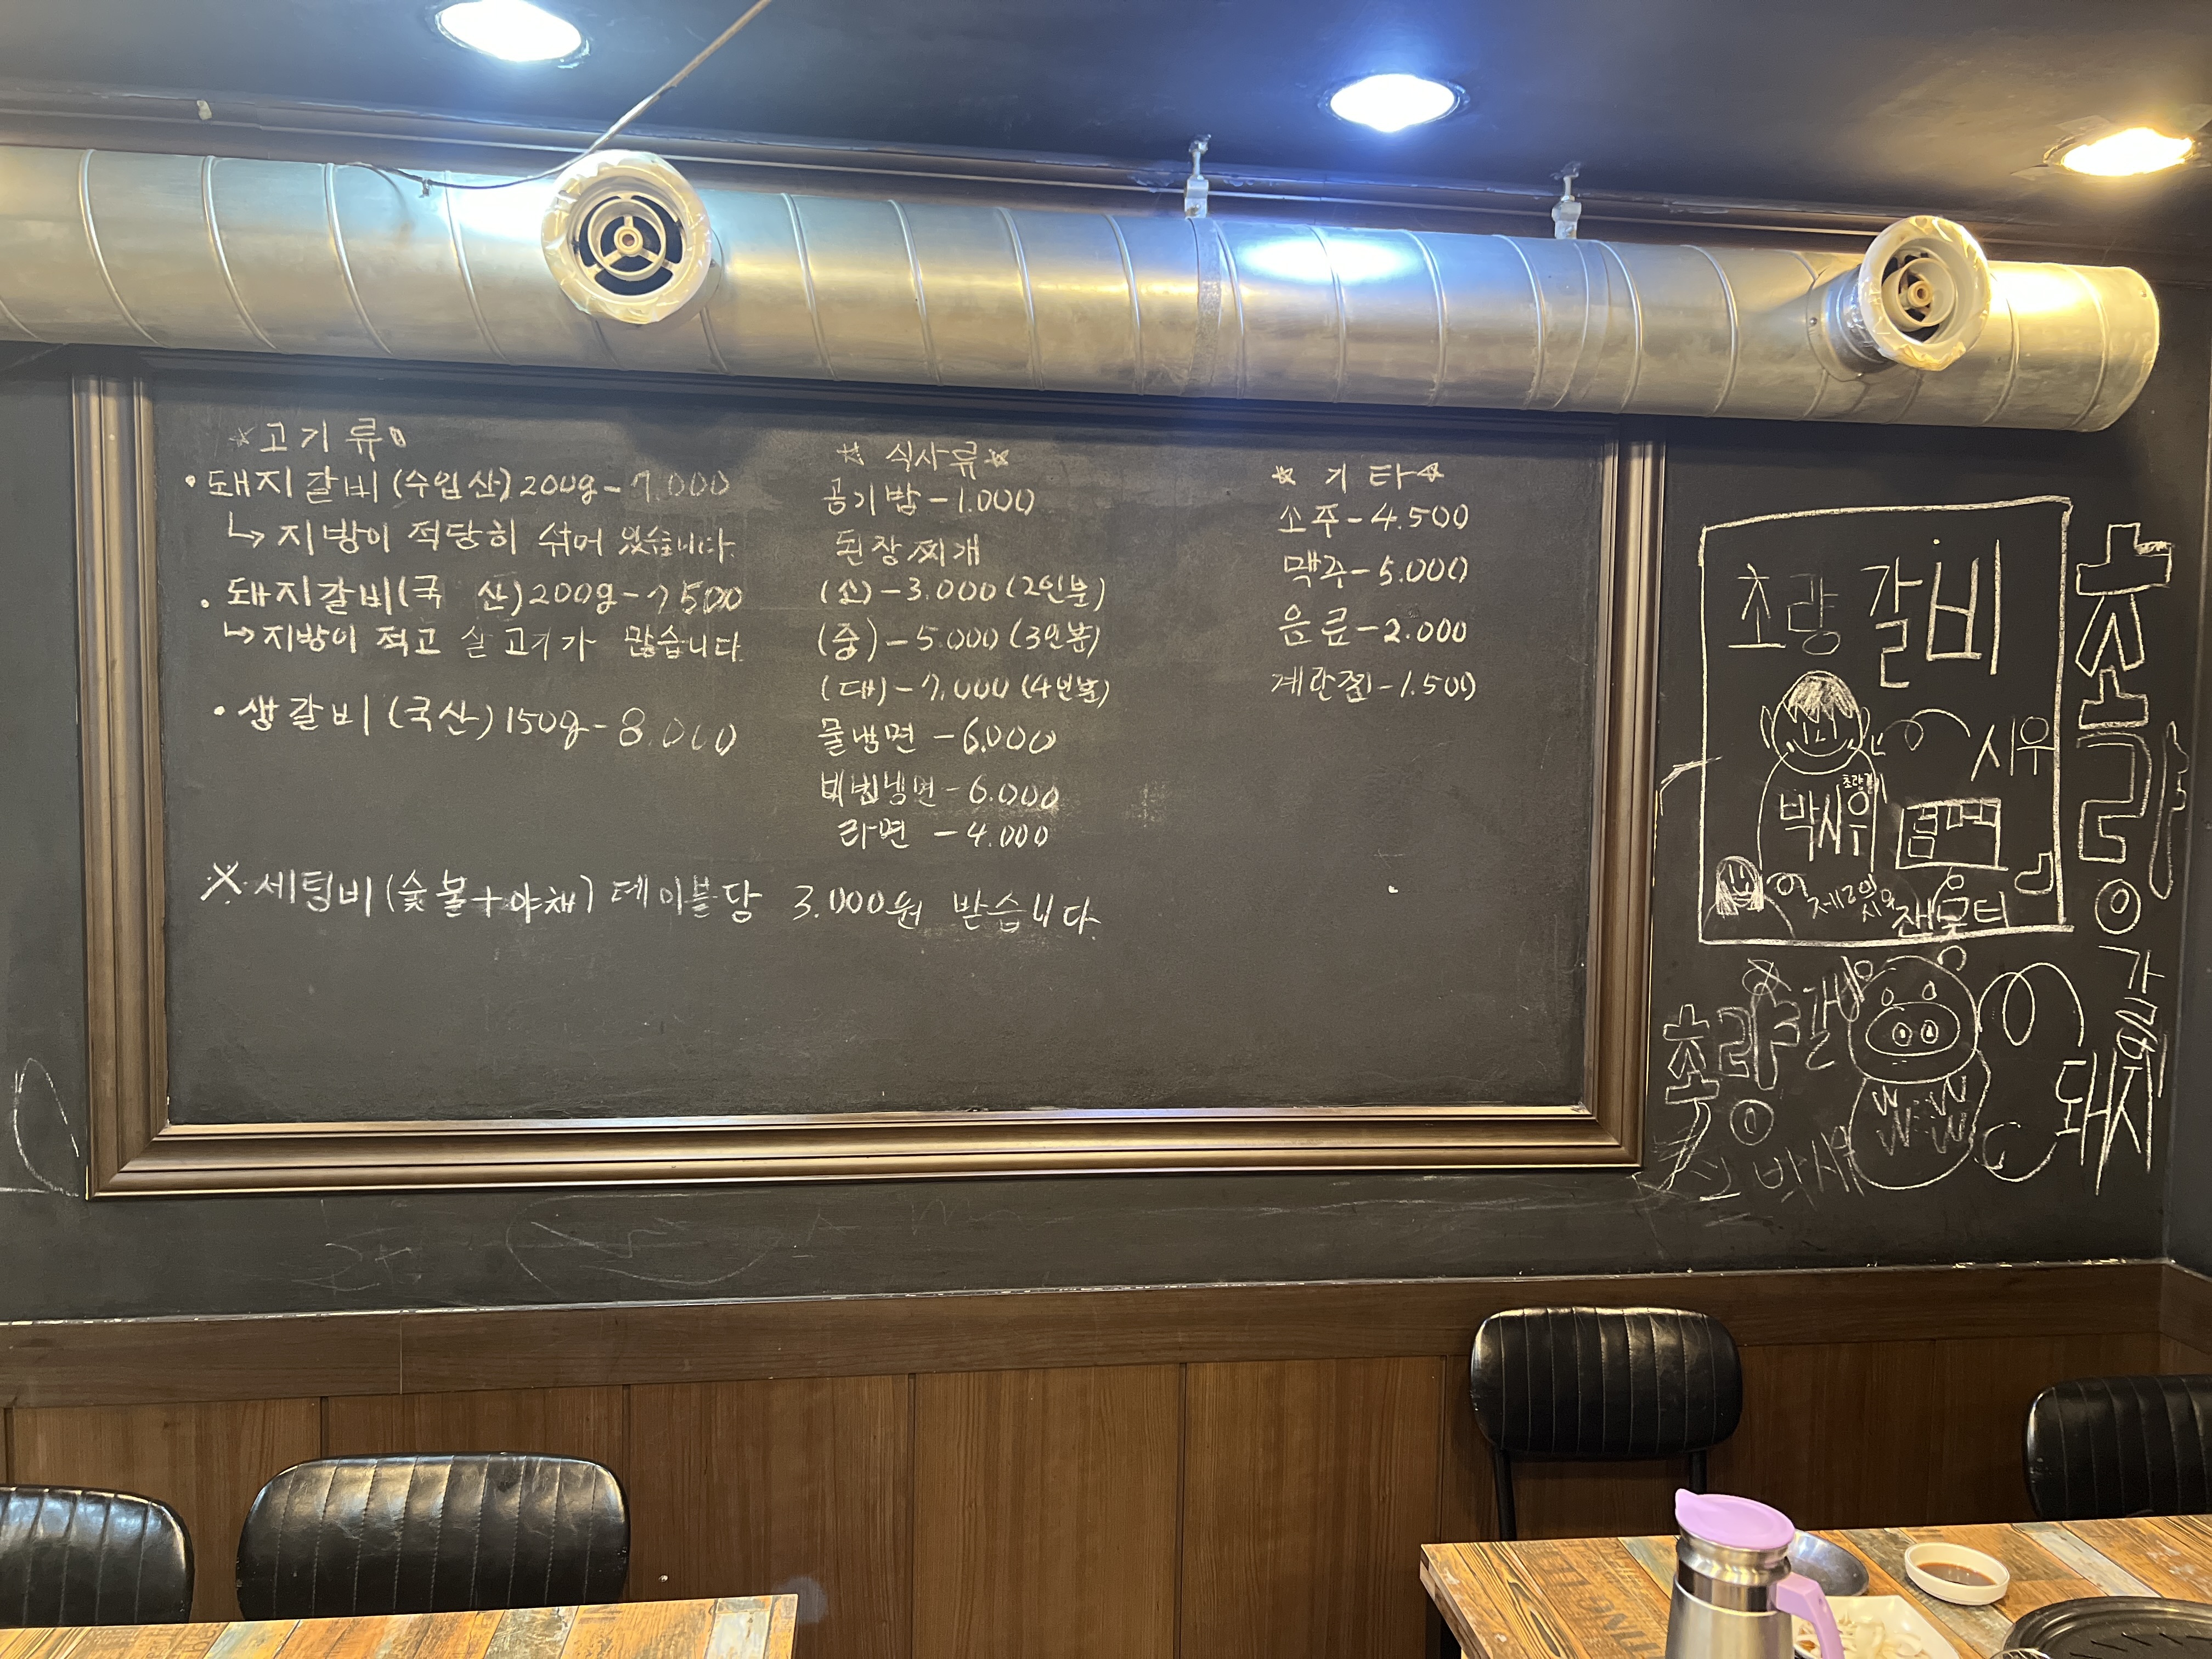 ☆고기류
• 돼지갈비(수입산)200g-7.000
↳ 지방이 적당히 섞어 있습니다.
• 돼지갈비(국 산)200g-7500
↳지방이 적고 살고기가 많습니다.
• 생갈비(국산)150g-8.000
☆ 식사류☆
공기밥-1.000
된장찌개
(소)-3.000(2인분)
(중)-5.000(3인분)
(대)-7.000(4인분)
물냉면 -6.000
비빔냉면-6.000
라면 -4.000
☆ 기타☆
소주-4.500
맥주-5.000
음료-2.000
계란찜-1.500
※ 세팅비(숯불+야채) 테이블당 3.000원 받습니다.
초량 갈비
시우
박시우
제2의
초량
갈비
초량
갈비
돼지
박시우